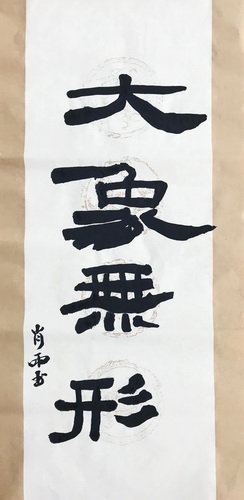 大象無形
肖雨书